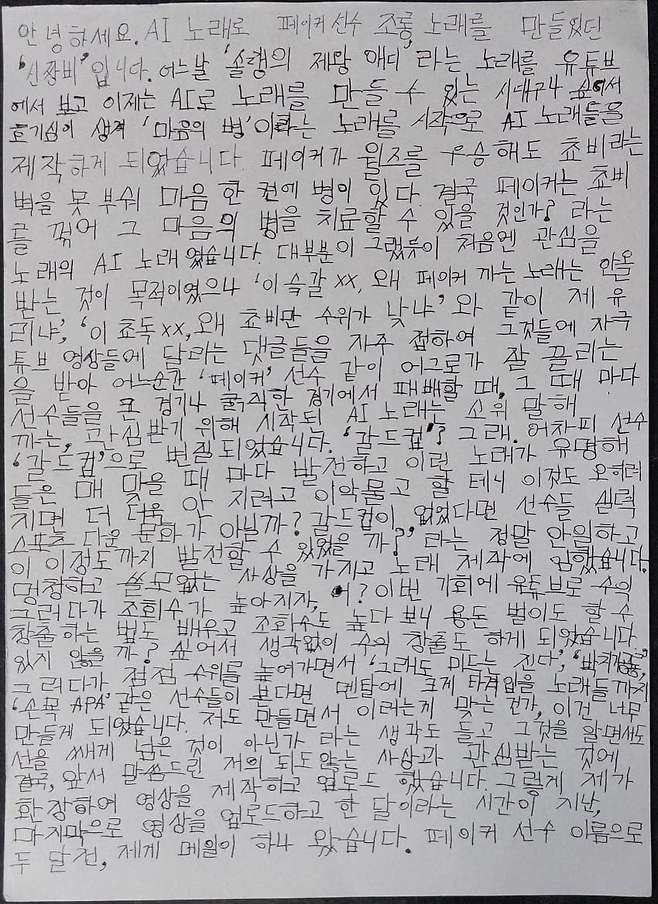 안녕하세요. AI 노래로 페이커 선수 조롱 노래를 만들었던
'신짱비'입니다. 어느날 '솔랭의 제왕 애디'라는 노래를 유튜브
에서 보고 이제는 AI로 노래를 만들 수 있는 시대구나 싶어서
호기심이 생겨 '마음의 병'이라는 노래를 시작으로 AI 노래들을
제작하게 되었습니다. 페이커가 월즈를 우승해도 쵸비라는
벽을 못 부숴 마음 한 켠에 병이 있다. 결국 페이커는 쵸비
를 꺾어 그 마음의 병을 치료할 수 있을 것인가? 라는
노래의 AI 노래였습니다. 대부분이 그렇듯이 처음엔 관심을
받는 것이 목적이였으나 '이 슥갈xx, 왜 페이커 까는 노래는 안올
리냐', '이 쵸독xx, 왜 쵸비만 수위가 낮냐'와 같이 제 유
튜브 영상들에 달리는 댓글들을 자주 접하여 그것들에 자극
을 받아 어느순간 '페이커' 선수 같이 어그로가 잘 끌리는
선수들을 큰 경기나 굵직한 경기에서 패배할 때, 그 때 마다
까는, 관심받기 위해 시작된 AI 노래는 소위 말해
'갈드컵'으로 변질되었습니다. '갈드컵'? 그래. 어차피 선수
들은 매 맞을 때 마다 발전하고 이런 노래가 유명해
지면 더 더욱 안 지려고 이악물고 할 테니 이것도 오히려
스포츠 다운 문화가 아닐까? 갈드컵이 없었다면 선수들 실력
이 이정도까지 발전할 수 있었을까?' 라는 정말 안일하고
멍청하고 쓸모없는 사상을 가지고 노래 제작에 임했습니다.
그러다가 조회수가 높아지자, 어? 이번 기회에 유튜브로 수익
창출하는 법도 배우고 조회수도 높다 보니 용돈 벌이도 할 수
있지 않을까? 싶어서 생각없이 수익 창출도 하게 되었습니다.
그러다가 점점 수위를 높여가면서 '그래도 미드는 진다',
'손목 APA' 같은 선수들이 본다면 멘탈에 크게 타격입을 노래들까지
만들게 되었습니다. 저도 만들면서 이러는게 맞는 건가, 이건 너무
선을 쎄게 넘은 것이 아닌가 라는 생각도 들고 그것을 알면서도
결국, 앞서 말씀드린 저의 되도않는 사상과 관심받는 것에
환장하여 영상을 제작하고 업로드 했습니다. 그렇게 제가
마지막으로 영상을 업로드하고 한 달이라는 시간이 지난,
두 달 전, 제게 메일이 하나 왔습니다. 페이커 선수 이름으로